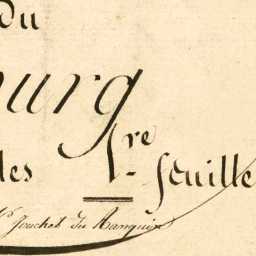 du
ourg
des 1re feuille
fouchet du Ranquin